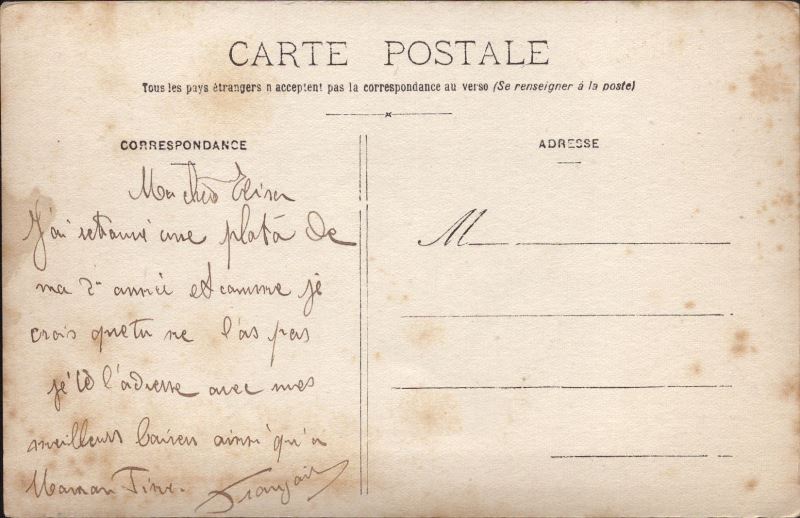 CARTE POSTALE
Tous les pays étrangers n acceptent pas la correspondance au verso (Se renseigner à la poste)
CORRESPONDANCE
Ma chère Elisa
J'ai retrouvé une photo de
ma 2e année et comme je
crois que tu ne l'as pas
je te l'adresse avec mes
meilleurs baisers ainsi qu'a
Maman Fine.
ADRESSE
M